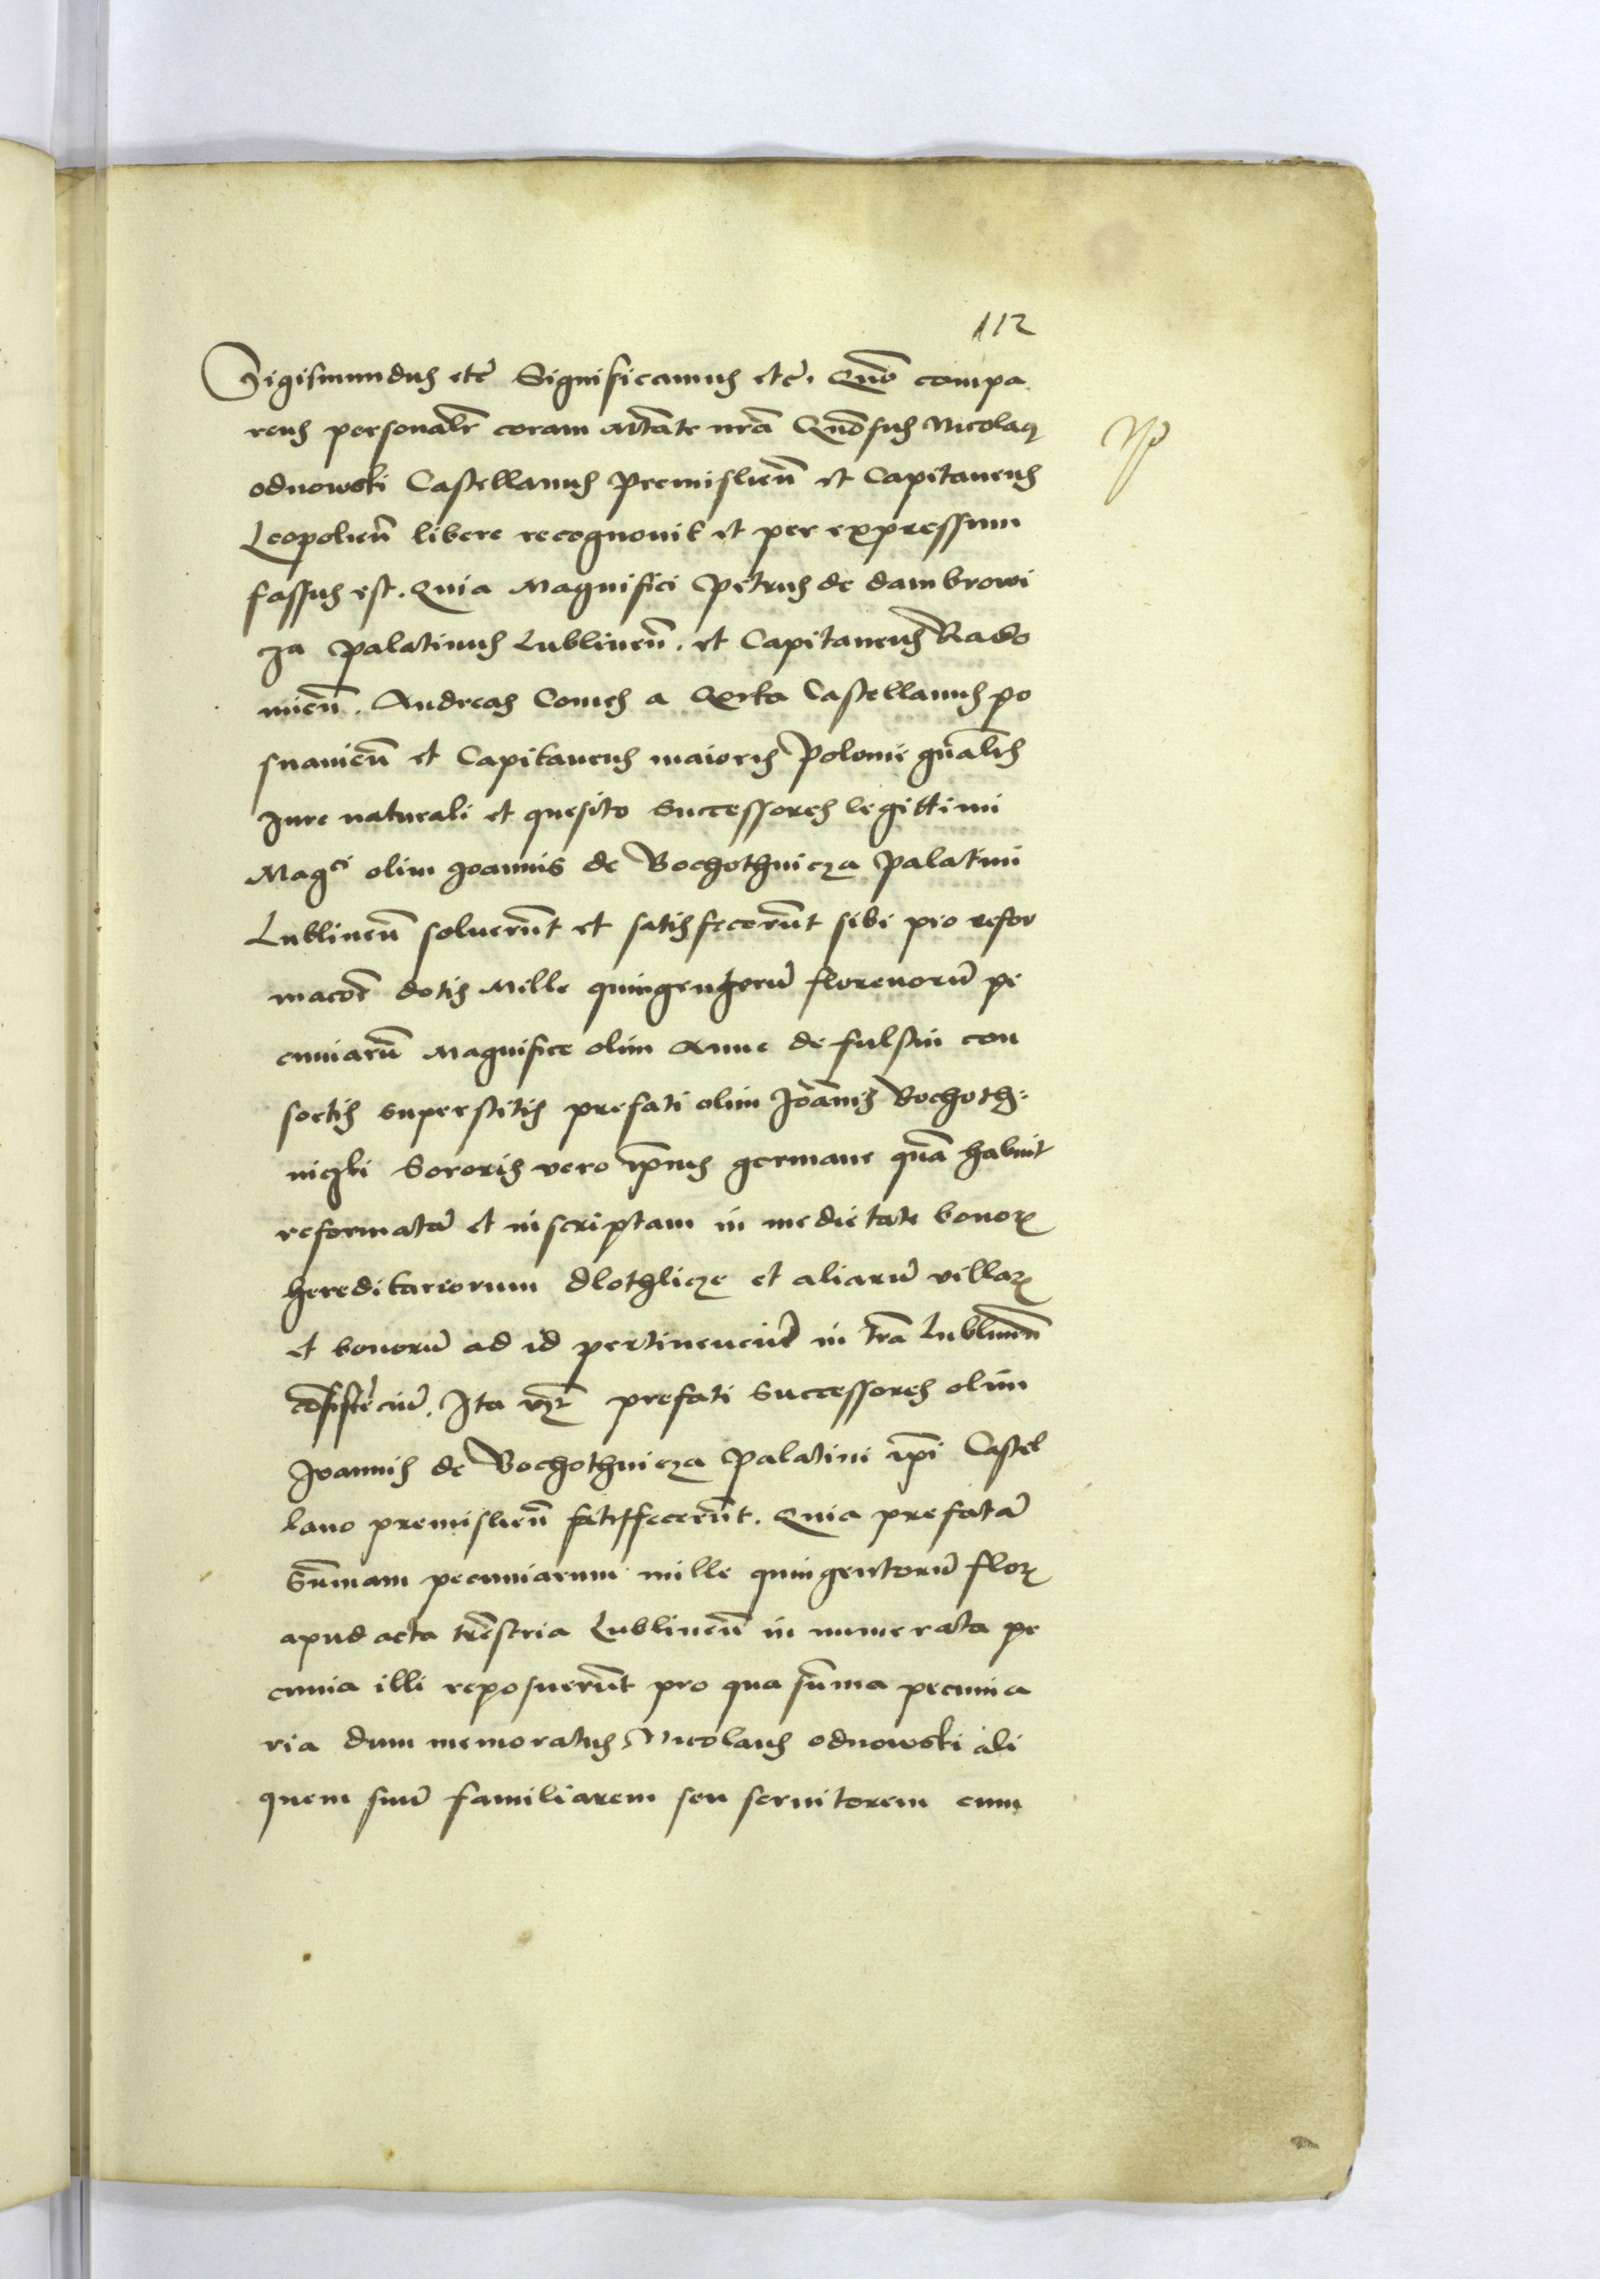 112
Sigismundus etc̃ Significamus etc̃. Quõ compa
rens personalr̃ coram Mtãte nrã Gñosus Nicolaus
odnowski Castellanus Premislieñ et Capitaneus
Leopolieñ libere recognovit et per expressum
fassus est. Quia Magnifici Petrus de dambrowi
cza Palatinus Lublineñ. et Capitaneus Rado
mieñ. Andreas Comes a Gorka Castellanus po
snanieñ et Capitaneus maioris Polonie gñalis
Jure naturali et quesito Successores legittimi
Magci olim Joannis de Bochothnicza Palatini
Lublineñ soluerũt et satisfecerũt sibi pro refor
macõe dotis Mille quingentorũ florenorũ pe
cuniarũ Magnifice olim Anne de fulstin con
sortis superstitis prefati olim Joãnis Bochoth-
niczki Sororis vero ip̃ius germane quã habuit
reformatã et inscriptam in medietate bonorꝝ
hereditariorum dlothlicze et aliarũ villarꝝ
et bonorũ ad id pertinenciũ in trã Lublineñ
cõsistẽciũ. Ita qr̃ prefati Successores olim
Joannis de Bochothnicza Palatini ip̃i Castel
lano premislieñ satisfecerũt. Quia prefatã
Sũmam pecuniarum mille quingentorũ florꝝ
apud acta trẽstria Lublineñ in numerata pe
cunia illi reposuerũt pro qua sũma pecunia
ria dum memoratus Nicolaus odnowski ali
quem suũ familiarem seu servitorem cum